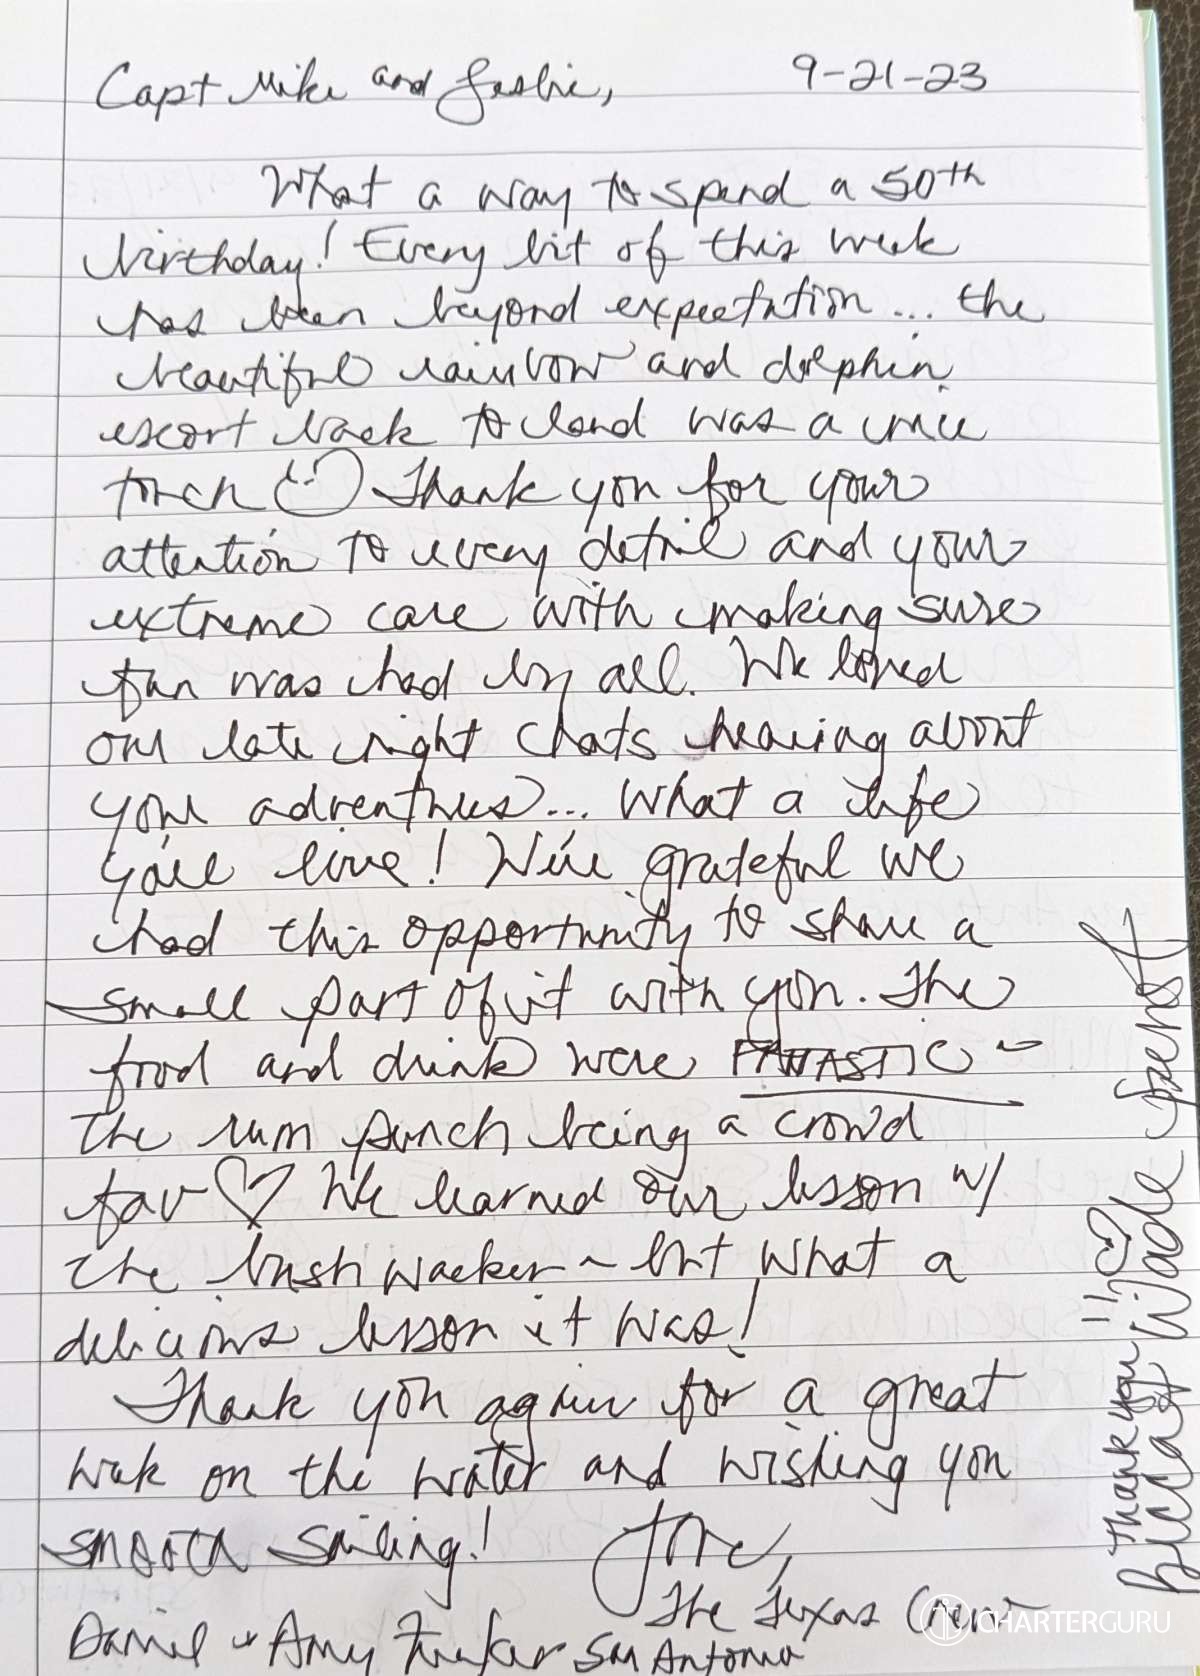 Capt Mike and Leslie, 9-21-23
What a way to spend a 50th
birthday! Every bit of this week
has been beyond expectation... the
beautiful rainbow and dolphin
escort back to land was a nice
touch Thank you for your
attention to every detail and your
extreme care with making sure
fun was had by all. We loved
our late night chats hearing about
your adventures... what a life
you live! We're grateful we
had this opportunity to share a
small part of it with you. The
food and drink were FANTASTIC -
the rum punch being a crowd
fav ♡ We learned our lesson w/
the bushwacker - but what a
delicious lesson it was!
Thank you again for a great
week on the water and wishing you
smooth sailing! Love,
The Texas Crew
Daniel & Amy San Antonio
Thank you!!
Wade
CHARTERGURU